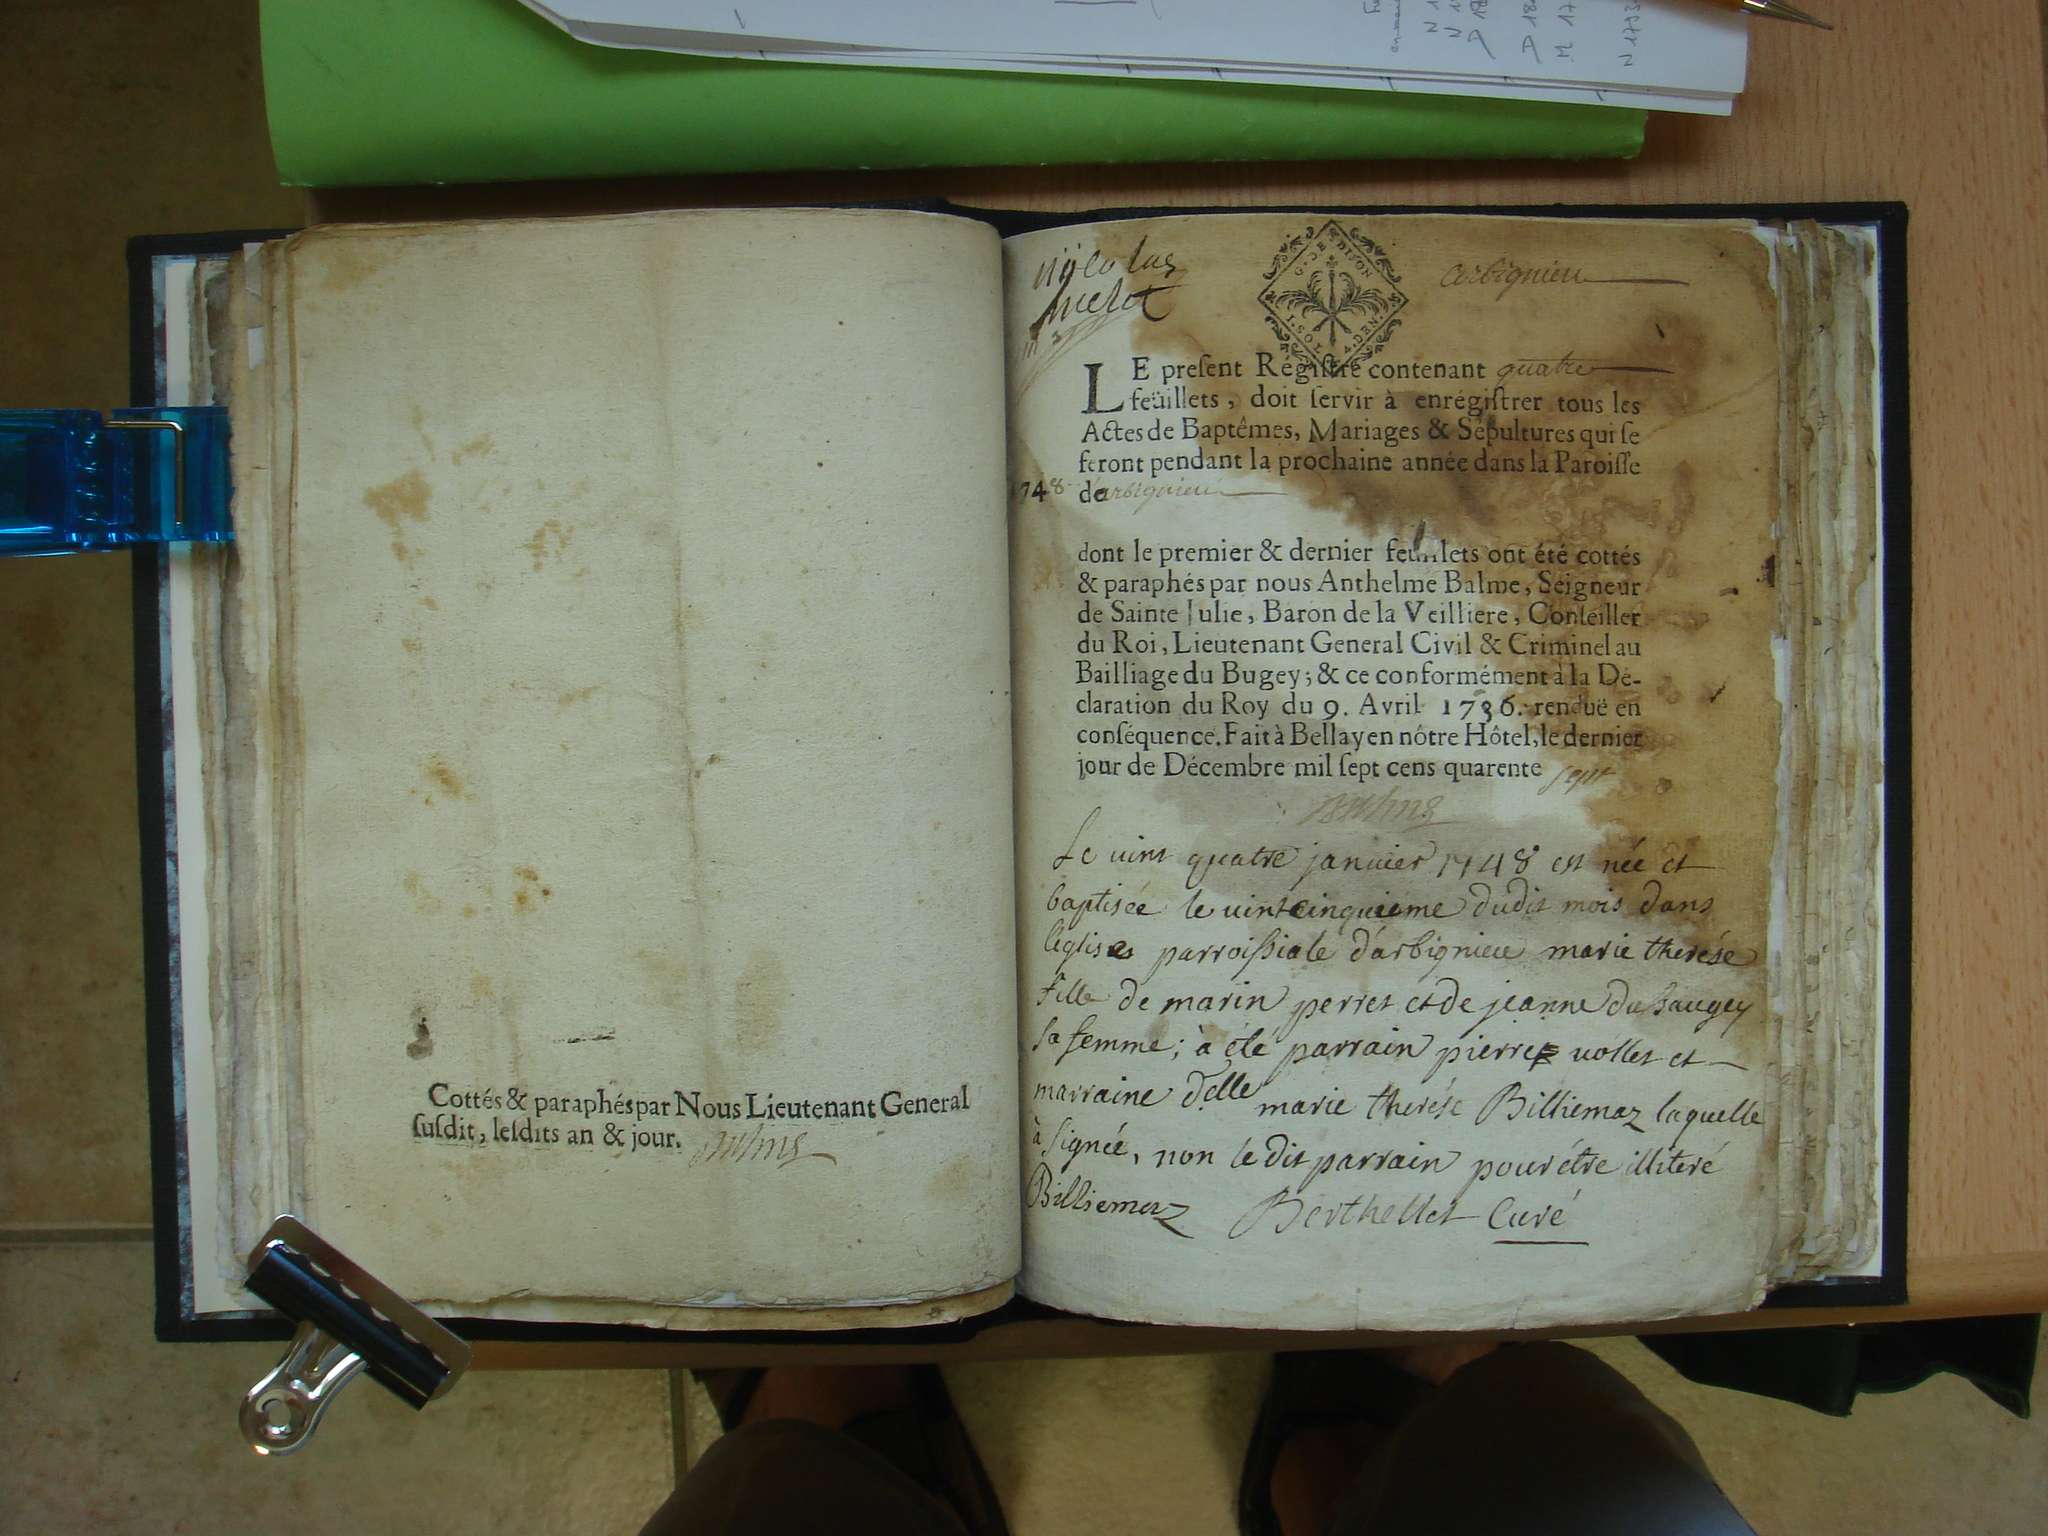 Cottés & paraphés par Nous Lieutenant General
susdit, lesdits an & jour.
nicolas
G. DE DIJON
1. SOL 4. DEN.
arbignieu
LE present Régistre contenant quatre
feüillets, doit servir à enrégistrer tous les
Actes de Baptêmes, Mariages & Sépultures qui se
feront pendant la prochaine année dans la Paroisse
1748 darbignieu
dont le premier & dernier feuillets ont été cottés
& paraphés par nous Anthelme Balme, Seigneur
de Sainte Julie, Baron de la Veilliere, Conseiller
du Roi, Lieutenant General Civil & Criminel au
Bailliage du Bugey; & ce conformément à la Dé-
claration du Roy du 9. Avril 1736. renduë en
conséquence. Fait à Bellay en nôtre Hôtel, le dernier
jour de Décembre mil sept cens quarente sept
Le vint quatre janvier 1748 est née et
baptisée le vintcinquieme dudit mois dans
léglise parroissiale d'arbignieu marie therése
fille de marin perret et de jeanne du saugey
sa femme; à été parrain pierre vollet et
marraine delle marie therése Billiemaz laquelle
à signée, non le dit parrain pour étre illiteré
Billiemaz Berthellet Curé